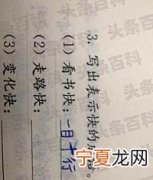 3. 写出表示快的
(1) 看书快：一目十行
(2) 走路快：
(3) 变化快：
头条百科
宁夏龙网